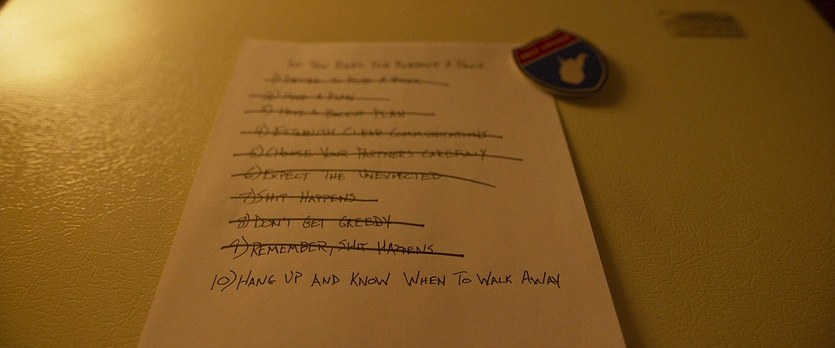 1) DECIDE TO ROB A BANK
2) HAVE A PLAN
3) HAVE A BACKUP PLAN
4) ESTABLISH CLEAR COMMUNICATIONS
5) CHOOSE YOUR PARTNERS CAREFULLY
6) EXPECT THE UNEXPECTED
7) SHIT HAPPENS
8) DON'T GET GREEDY
9) REMEMBER, SHIT HAPPENS
10) HANG UP AND KNOW WHEN TO WALK AWAY